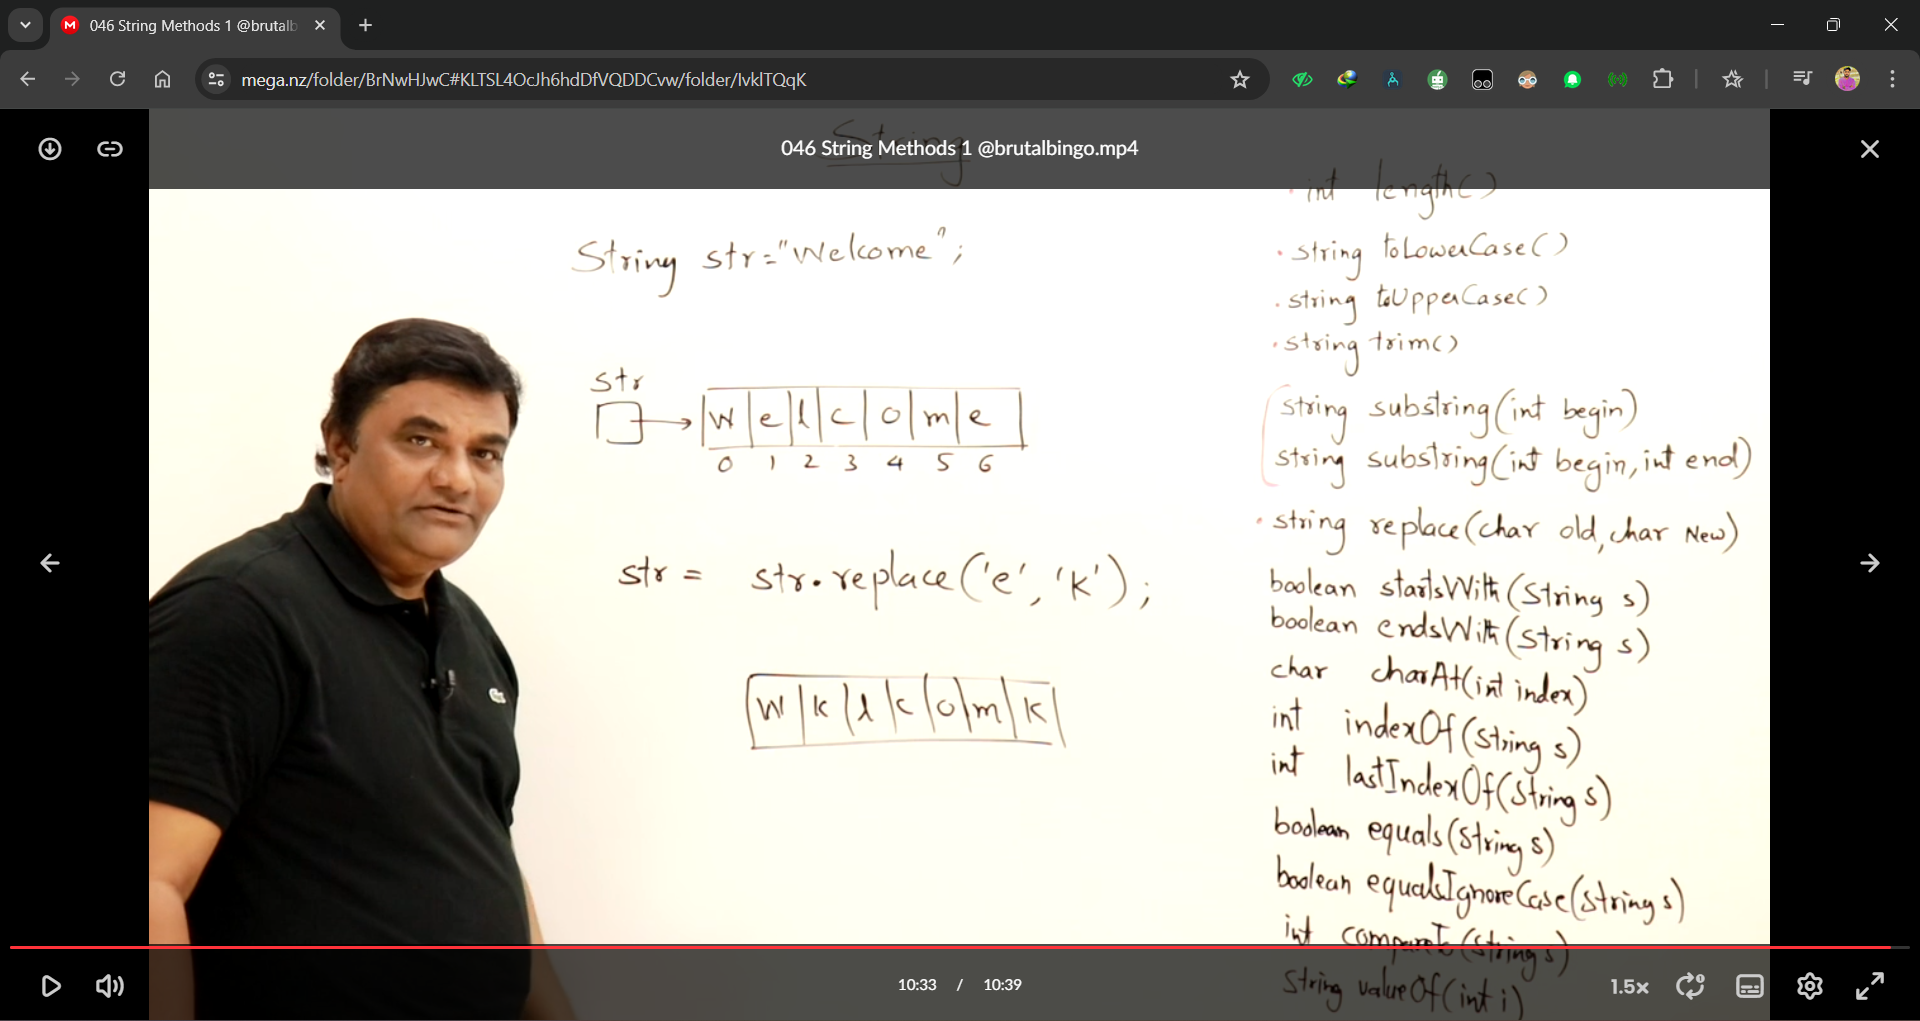 046 String Methods 1 @brutalb
mega.nz/folder/BrNwHJwC#KLTSL4OcJh6hdDfVQDDCvw/folder/IvklTQqK
String
046 String Methods 1 @brutalbingo.mp4
String str="Welcome";
str
W e l c o m e
0 1 2 3 4 5 6
str = str.replace('e', 'k');
W k l c o m k
int length()
string toLowerCase()
string toUpperCase()
string trim()
string substring(int begin)
string substring(int begin, int end)
string replace(char old, char New)
boolean startsWith(String s)
boolean endsWith(String s)
char charAt(int index)
int indexOf(String s)
int lastIndexOf(String s)
boolean equals(String s)
boolean equalsIgnoreCase(String s)
int compareTo(String s)
String valueOf(int i)
10:33 / 10:39
1.5x